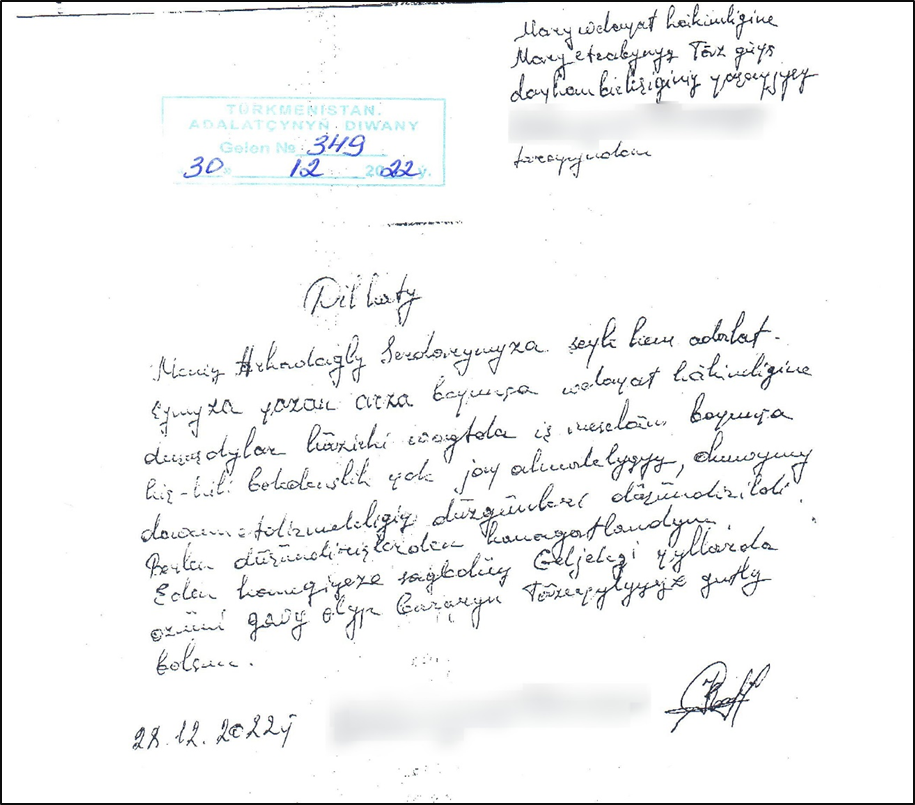 Mary welaýat häkimligine
Mary etrabynyň Täze güýç
daýhan birleşiginiň ýaşaýjysy
tarapyndan
TÜRKMENISTAN.
ADALATÇYNYŇ DIWANY
Gelen № 349
30 12 2022 ý.
Dil haty
Meniň Arkadagly Serdarymyza şeýle hem adalat-
çymyza ýazan arza boýunça welaýat häkimligine
häzirki wagtda iş meseläm boýunça
hiç-hili ýok jaý almaklygy,
düzgünleri düşündirildi.
Berlen düşündirişlerden kanagatlandym.
Eden sagbolsuň Geljekgi ýyllarda
özümi gaýy alyp bararyn Täze ýylyňyz gutly
bolsun.
28.12.2022ý